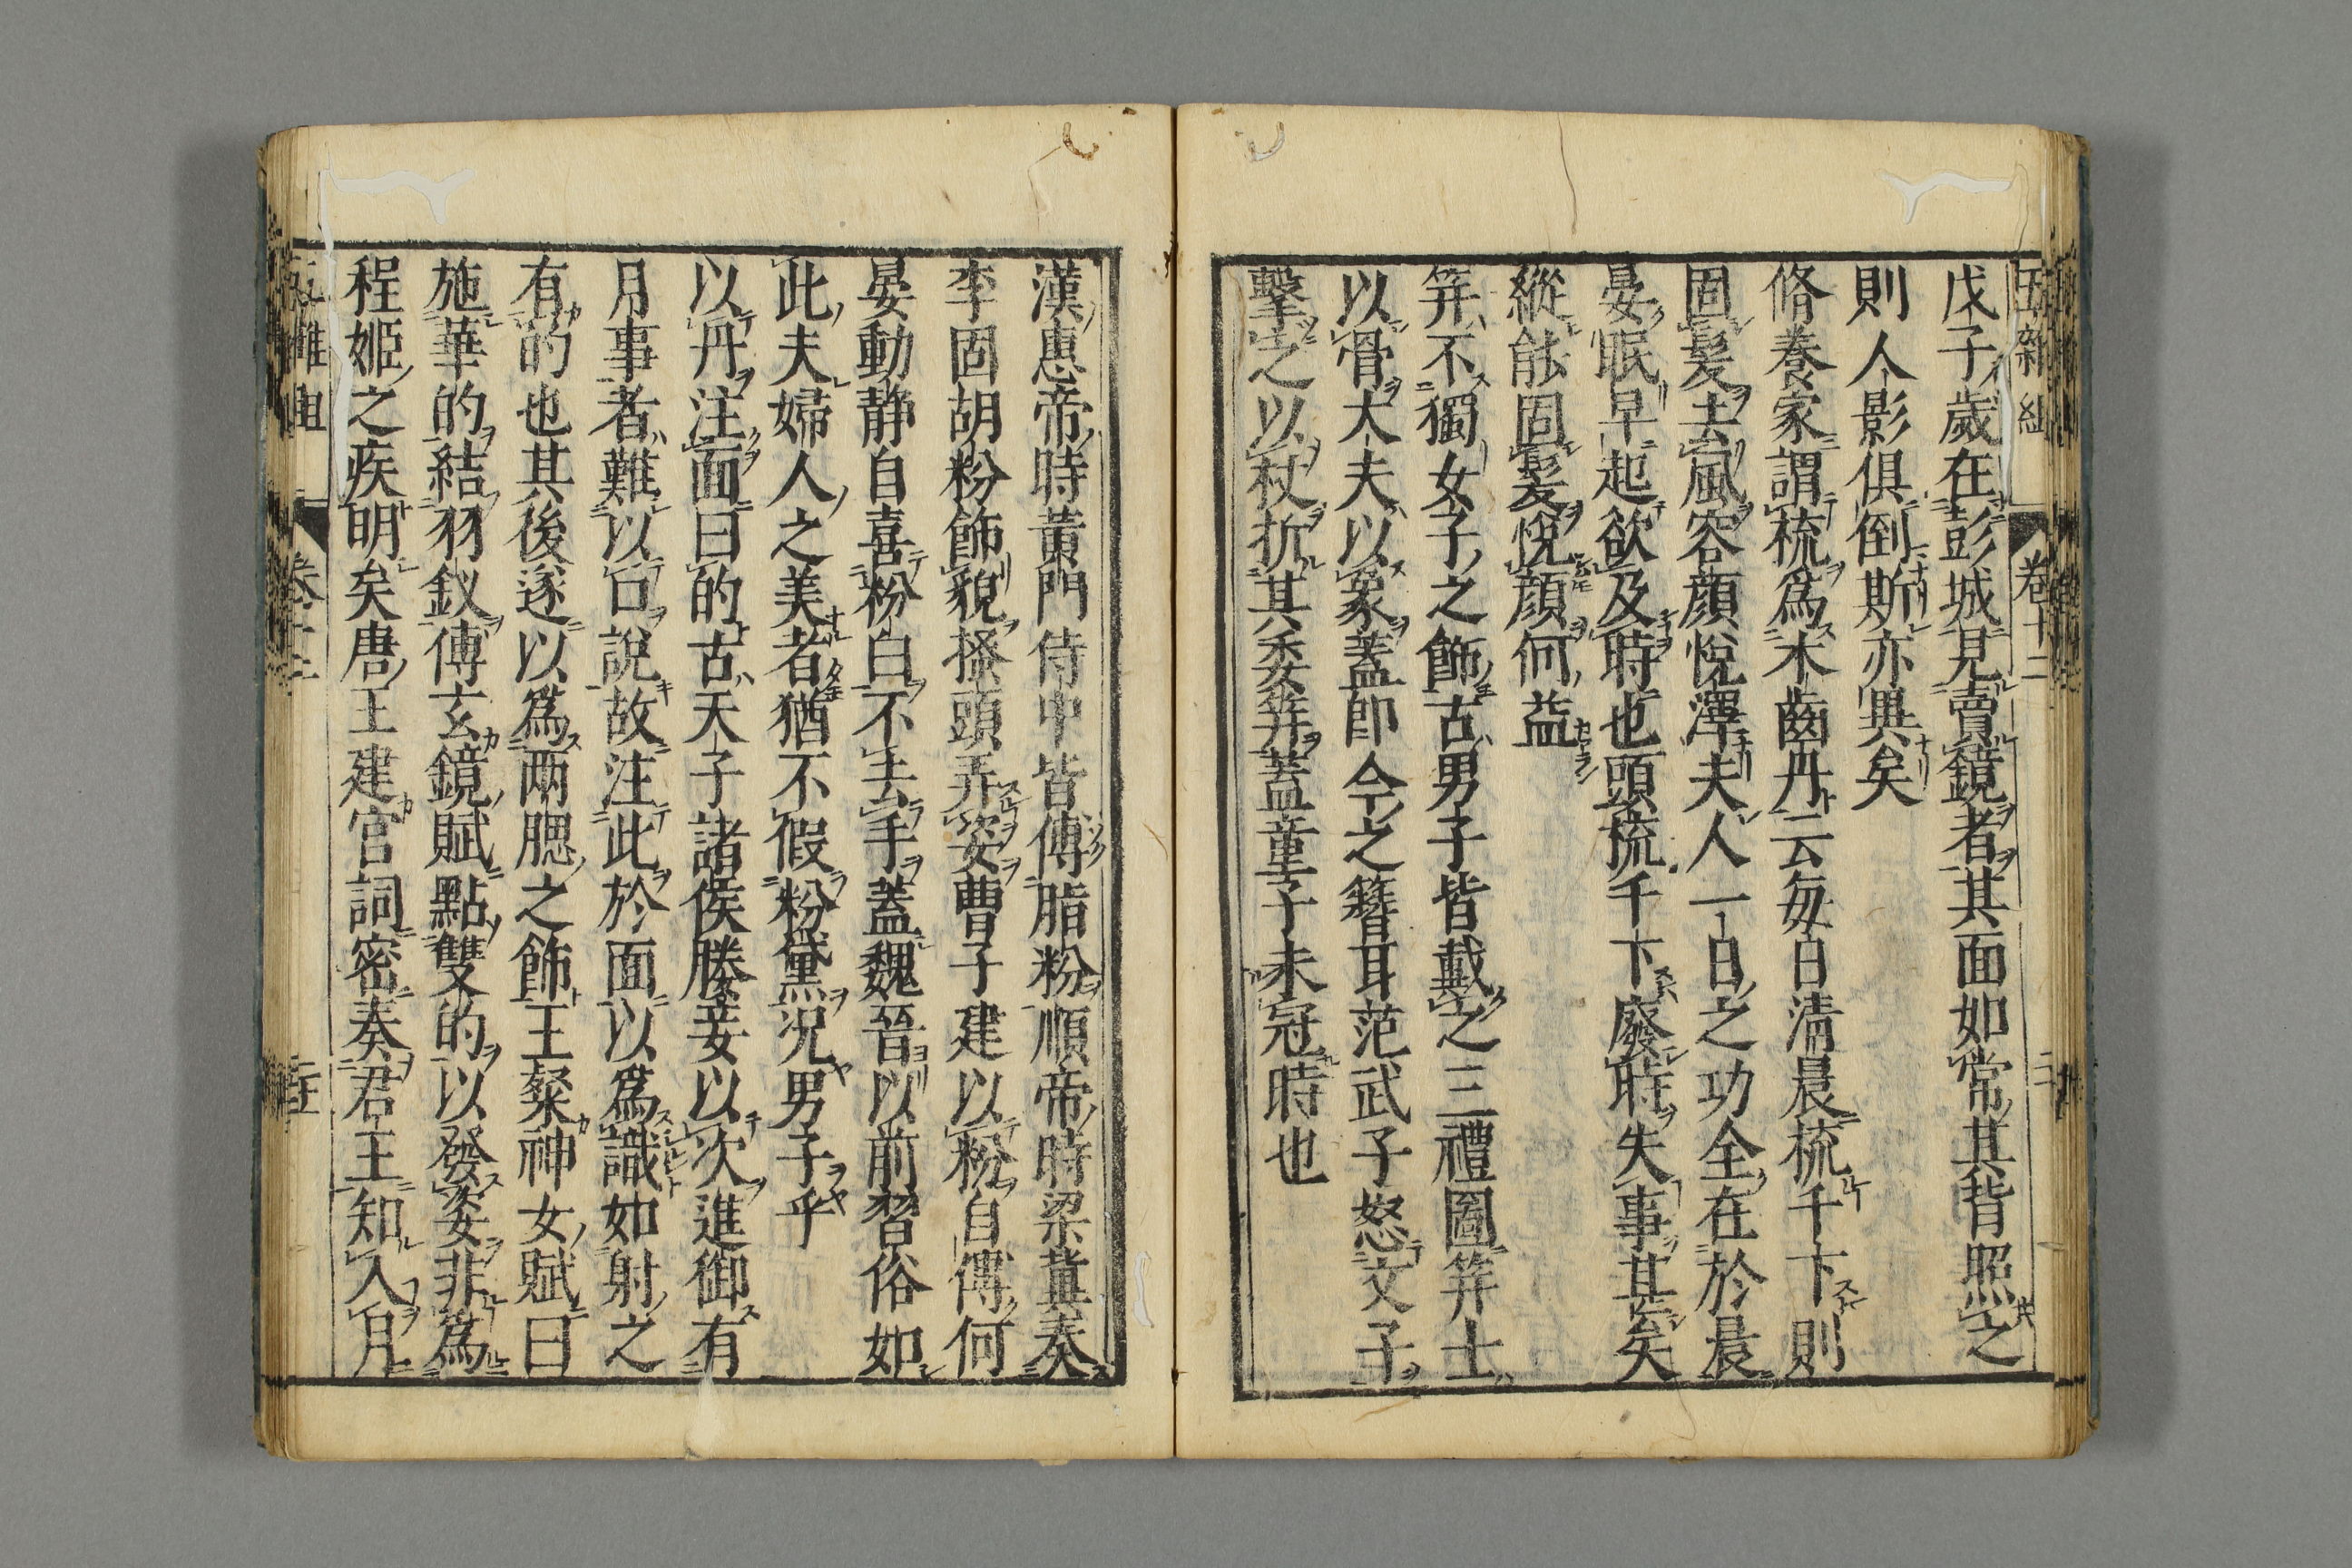 五雜組 卷十二
戊子歲在彭城見賣鏡者其面如常其背照之
則人影俱倒斯亦異矣
脩養家謂梳爲木齒丹云每日清晨梳千下則
固髮去風容顏悅澤夫人一日之功全在於晨
晏眠早起欲及時也頭梳千下廢時失事甚矣
縱能固髮悅顏何益
笄不獨女子之飾古男子皆戴之三禮圖笄士
以骨大夫以象蓋卽今之簪耳范武子怒文子
擊之以杖折其委笄蓋童子未冠時也
漢惠帝時黃門侍中皆傅脂粉順帝時梁冀奏
李固胡粉飾貌搔頭弄姿曹子建以粉自傅何
晏動靜自喜粉白不去手蓋魏晉以前習俗如
此夫婦人之美者猶不假粉黛況男子乎
以丹注面曰的古天子諸侯媵妾以次進御有
月事者難以口說故注此於面以爲識如射之
有的也其後遂以爲兩腮之飾王粲神女賦曰
施華的結羽釵傅玄鏡賦點雙的以發姿非爲
程姬之疾明矣唐王建官詞密奏君王知入月
五雜組 卷十二